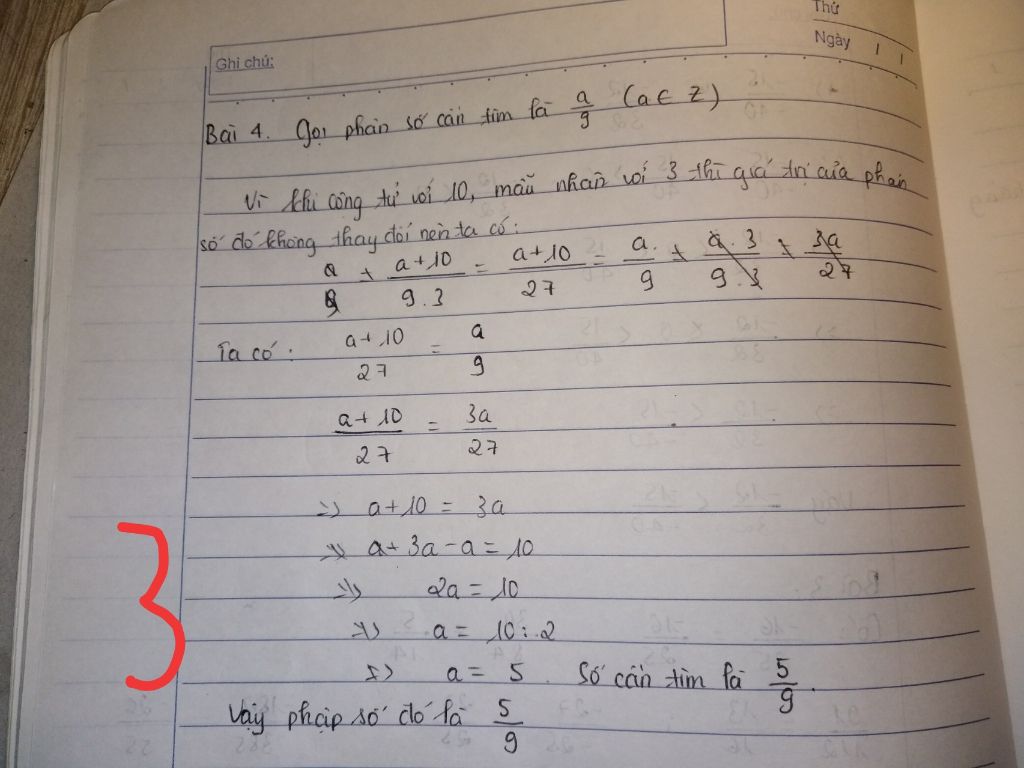 Thứ
Ngày / /
Ghi chú:
Bài 4. Gọi phân số cần tìm là a/9 (a ∈ Z)
Vì khi cộng tử với 10, mẫu nhân với 3 thì giá trị của phân
số đó không thay đổi nên ta có:
a/9 + (a+10)/(9.3) = (a+10)/27 = a/9 + (a.3)/(9.3) + 3a/27
Ta có: (a+10)/27 = a/9
(a+10)/27 = 3a/27
=> a+10 = 3a
=> a+3a-a = 10
=> 2a = 10
=> a = 10:2
=> a = 5. Số cần tìm là 5/9.
Vậy phập số đó là 5/9